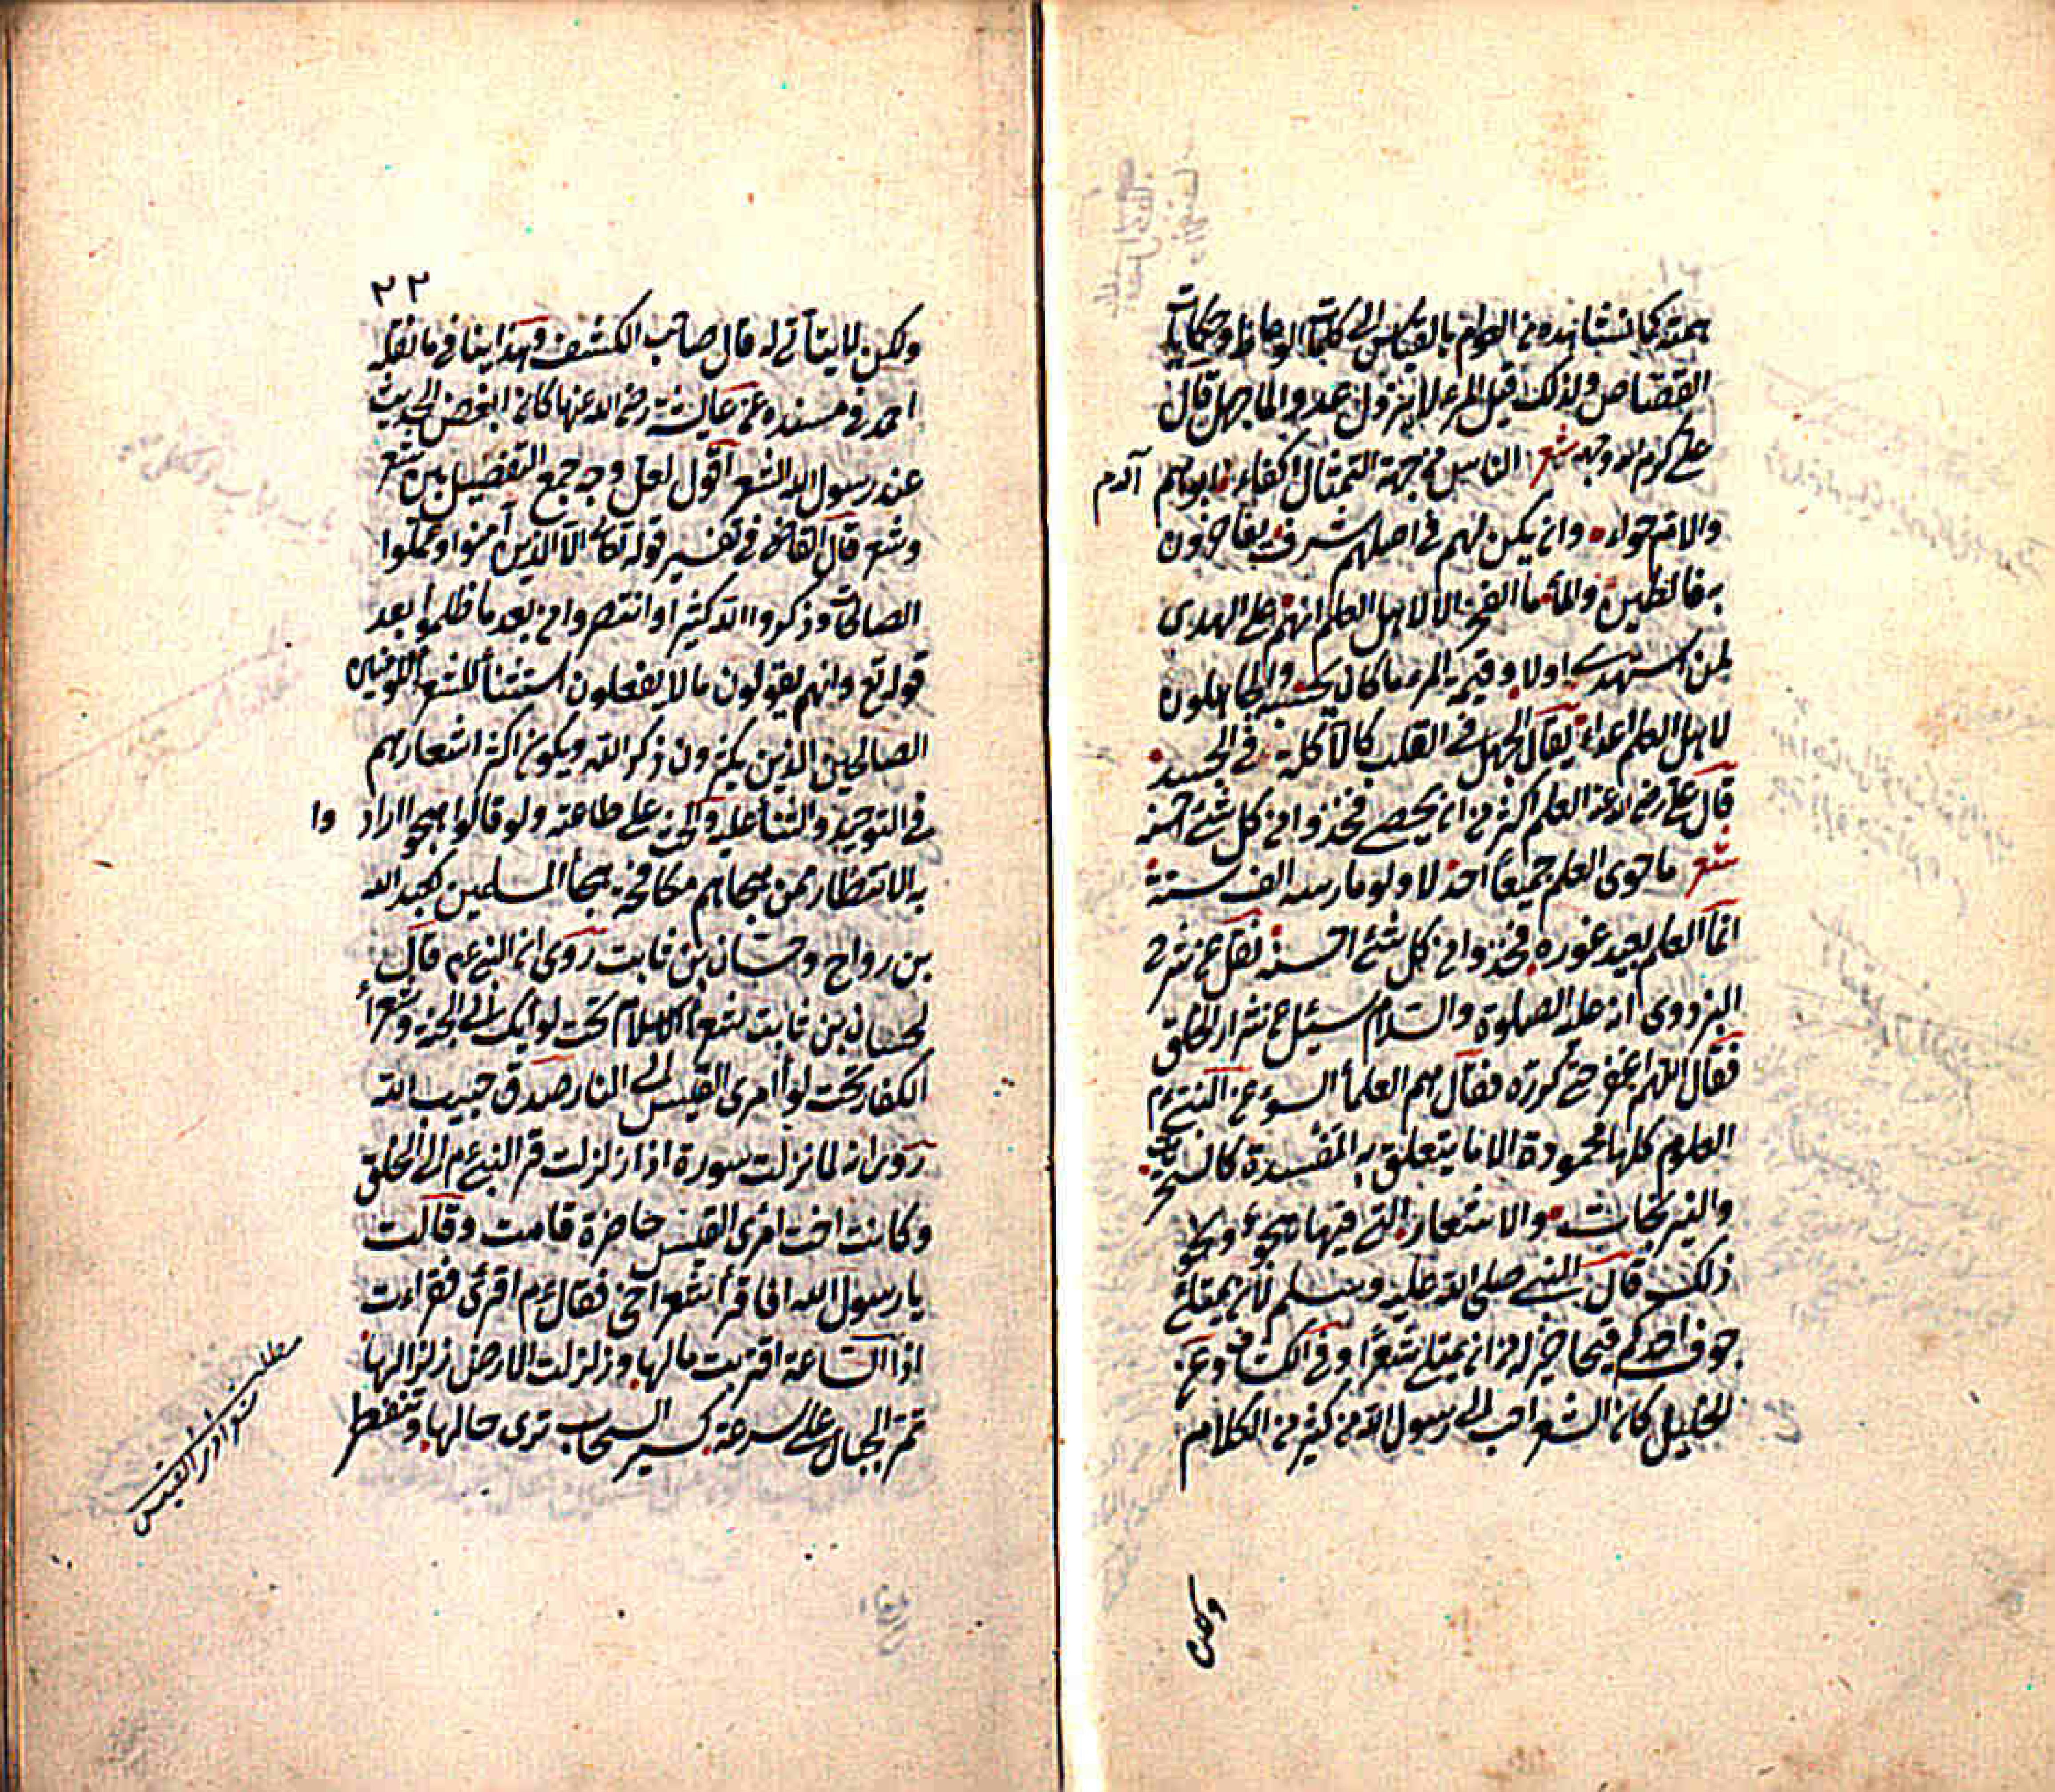 بهمته كما نشاهده من العوام بالقياس الى كلمات الوعاظ وحكايات
القصّاص ولذلك قيل المرء لا يزول عدو لما جهل قال
على كرم الله وجهه شعر الناس من جهة التمثال اكفاء ابوهم آدم
والام حواء وان يكن لهم فى اصلهم شرف يفاخرون
به فالطين والماء ما الفخر الا لاهل العلم انهم على الهدى
لمن استهدى اولا وقيمة المرء ما كان يحسنه والجاهلون
لاهل العلم اعداء يقال الجهل فى القلب كالآكلة فى الجسد
قال على رضى الله عنه العلم اكثر من ان يحصى فخذوا من كل شئ احسنه
شعر ما حوى العلم جميعا احد لا ولو مارسه الف سنة
انما العلم بعيد غوره فخذوا من كل شئ احسنه نقل عن شرح
البزدوى انه عليه الصلوة والسلام سئل عن شرار الخلق
فقال اللهم اغفر حتى كرره فقال هم العلماء السوء عن النبى عم
العلوم كلها محمودة الا ما يتعلق به المفسدة كالسحر
والنيرنجات والاشعار التى فيها هجو ونحو
ذلك قال النبى صلى الله عليه وسلم لان يمتلئ
جوف احدكم قيحا خير له من ان يمتلئ شعرا وفى الكشاف وعن
الخليل كان الشعر احب الى رسول الله من كثير من الكلام
ولكن
٢٢
ولكن لا يتأتى له قال صاحب الكشف وهذا ينافى ما نقله
احمد فى مسنده عن عايشة رضى الله عنها كان ابغض الحديث
عند رسول الله الشعر اقول لعل وجه جمع التفصيل بين شعر
وشعر قال القاضى فى تفسير قوله تعالى الا الذين آمنوا وعملوا
الصالحات وذكروا الله كثيرا وانتصروا من بعد ما ظلموا بعد
قوله تع وانهم يقولون ما لا يفعلون استثناء للشعراء المؤمنين
الصالحين الذين يكثرون ذكر الله ويكون اكثر اشعارهم
فى التوحيد والثناء عليه والحث على طاعته ولو قالوا هجوا اراد وا
به الانتصار ممن هجاهم مكافحة هجاة المسلمين كعبد الله
بن رواح وحسان بن ثابت روى ان النبى عم قال
لحسان بن ثابت شعراء الاسلام تحت لوائك الى الجنة وشعراء
الكفار تحت لواء امرى القيس الى النار صدق حبيب الله
روى انه لما نزلت سورة اذا زلزلت قرء النبى عم الى الخلق
وكانت اخت امرى القيس حاضرة قامت وقالت
يا رسول الله افاقرأ شعر اخى فقال عم اقرئ فقراءت
اذا الساعة اقتربت مالها وزلزلت الارض زلزالها
تمر الجبال على سرعة كسير السحاب ترى حالها وتنفطر
مطلب
شعر امرؤ القيس